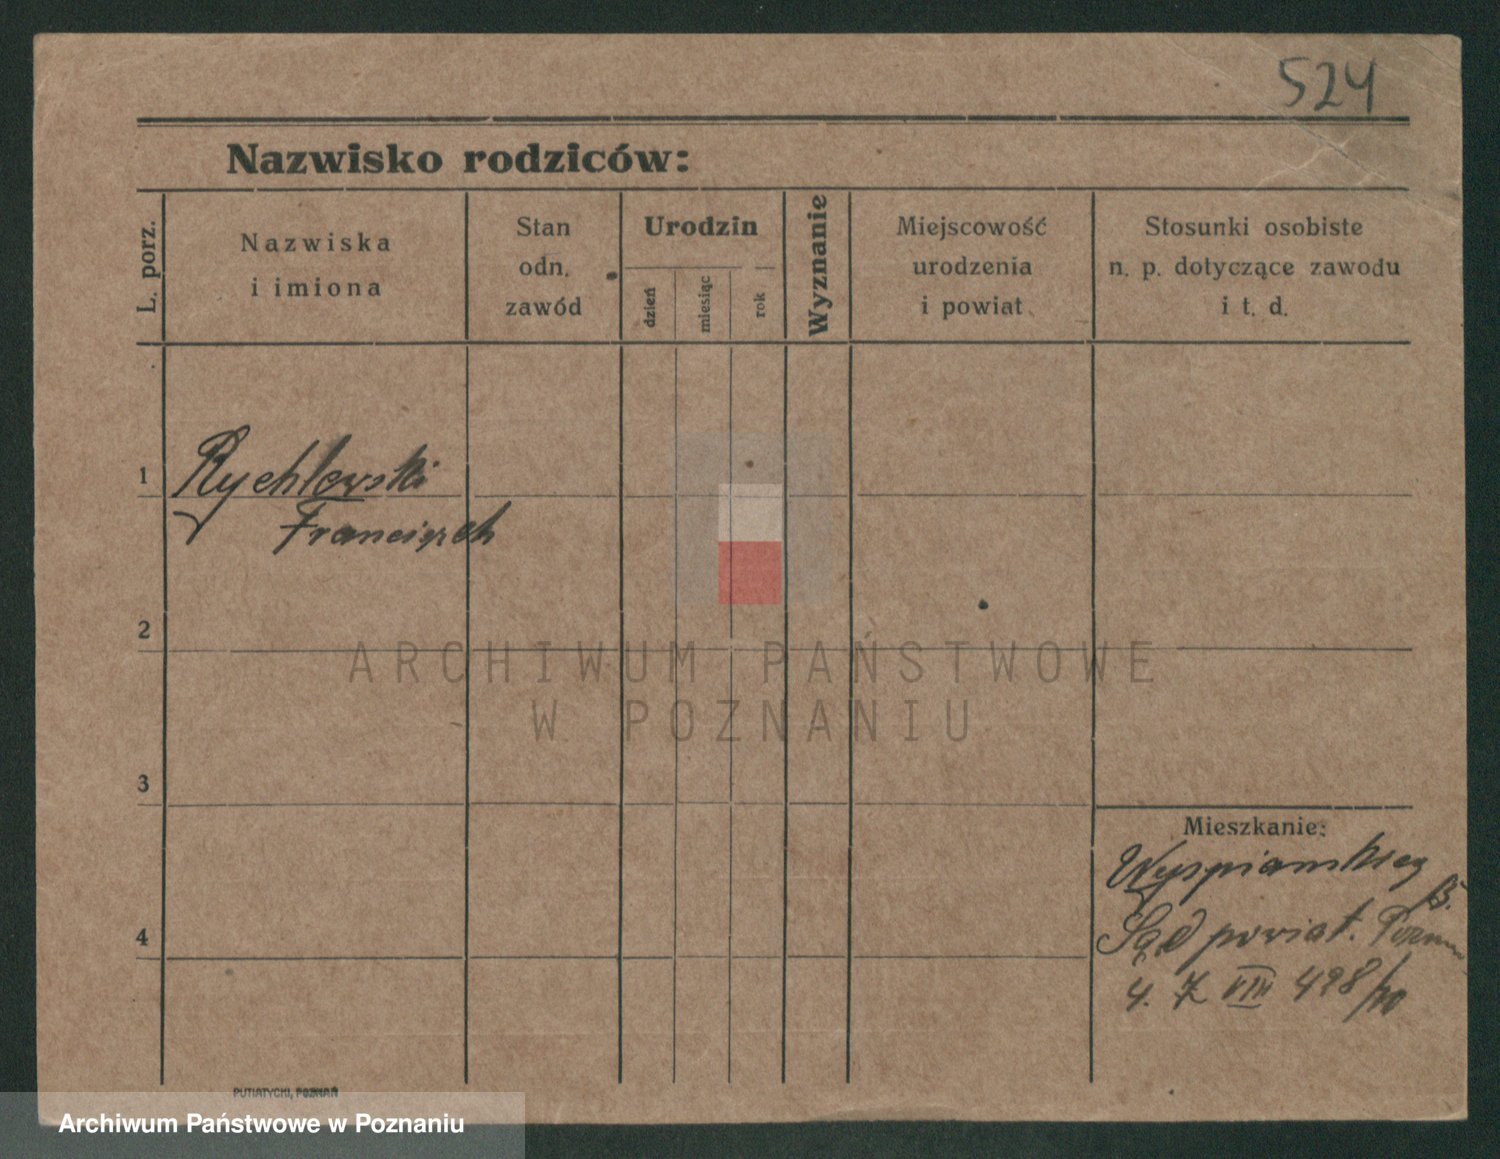 524
Nazwisko rodziców:
L. porz.
Nazwiska
i imiona
Stan
odn.
zawód
Urodzin
dzień
miesiąc
rok
Wyznanie
Miejscowość
urodzenia
i powiat
Stosunki osobiste
n. p. dotyczące zawodu
i t. d.
1
Rychlewski
Franciszek
2
3
4
Mieszkanie:
Wyspiańskieg
Sąd powiat. Poznań
4. Z VIII 498/
ARCHIWUM PAŃSTWOWE
W POZNANIU
PUTIATYCKI, POZNAŃ
Archiwum Państwowe w Poznaniu